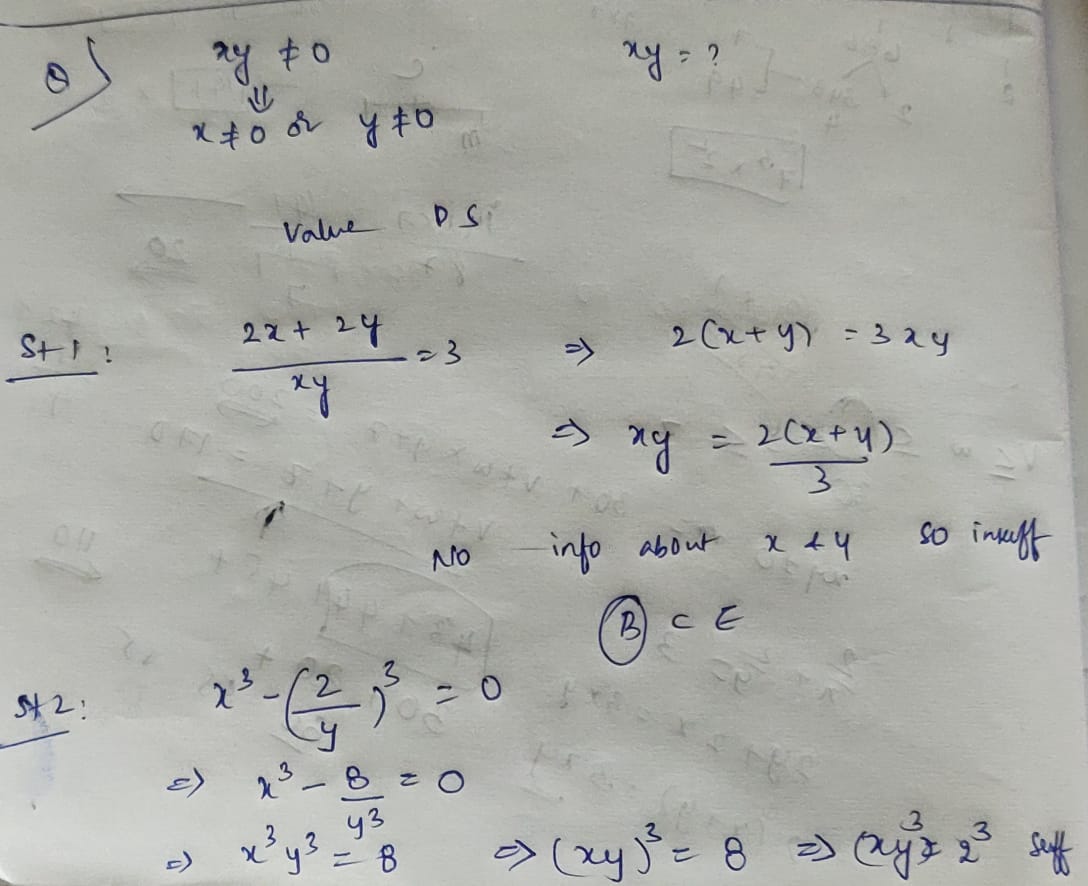 Q) xy ≠ 0 xy = ?
⇓
x ≠ 0 or y ≠ 0
Value DS
St 1: (2x + 2y)/xy = 3 ⇒ 2(x + y) = 3xy
⇒ xy = 2(x + y)/3
No info about x & y so insuff
B C E
St 2: x³ - (2/y)³ = 0
⇒ x³ - 8/y³ = 0
⇒ x³y³ = 8 ⇒ (xy)³ = 8 ⇒ (xy)³ = 2³ suff